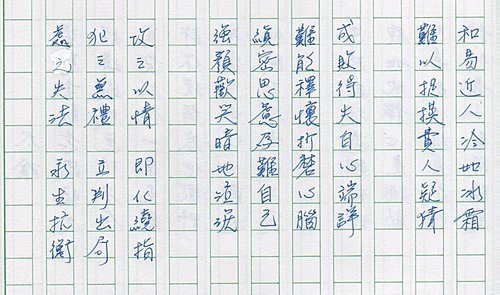 和易近人冷如冰霜
難以捉摸費人疑猜
成敗得失自心端詳
難能釋懷折磨心腦
縝密思慮難自己
強顏歡笑暗地泣淚
攻之以情 即化繞指
犯之無禮 立判出局
之失法 永生抗衡